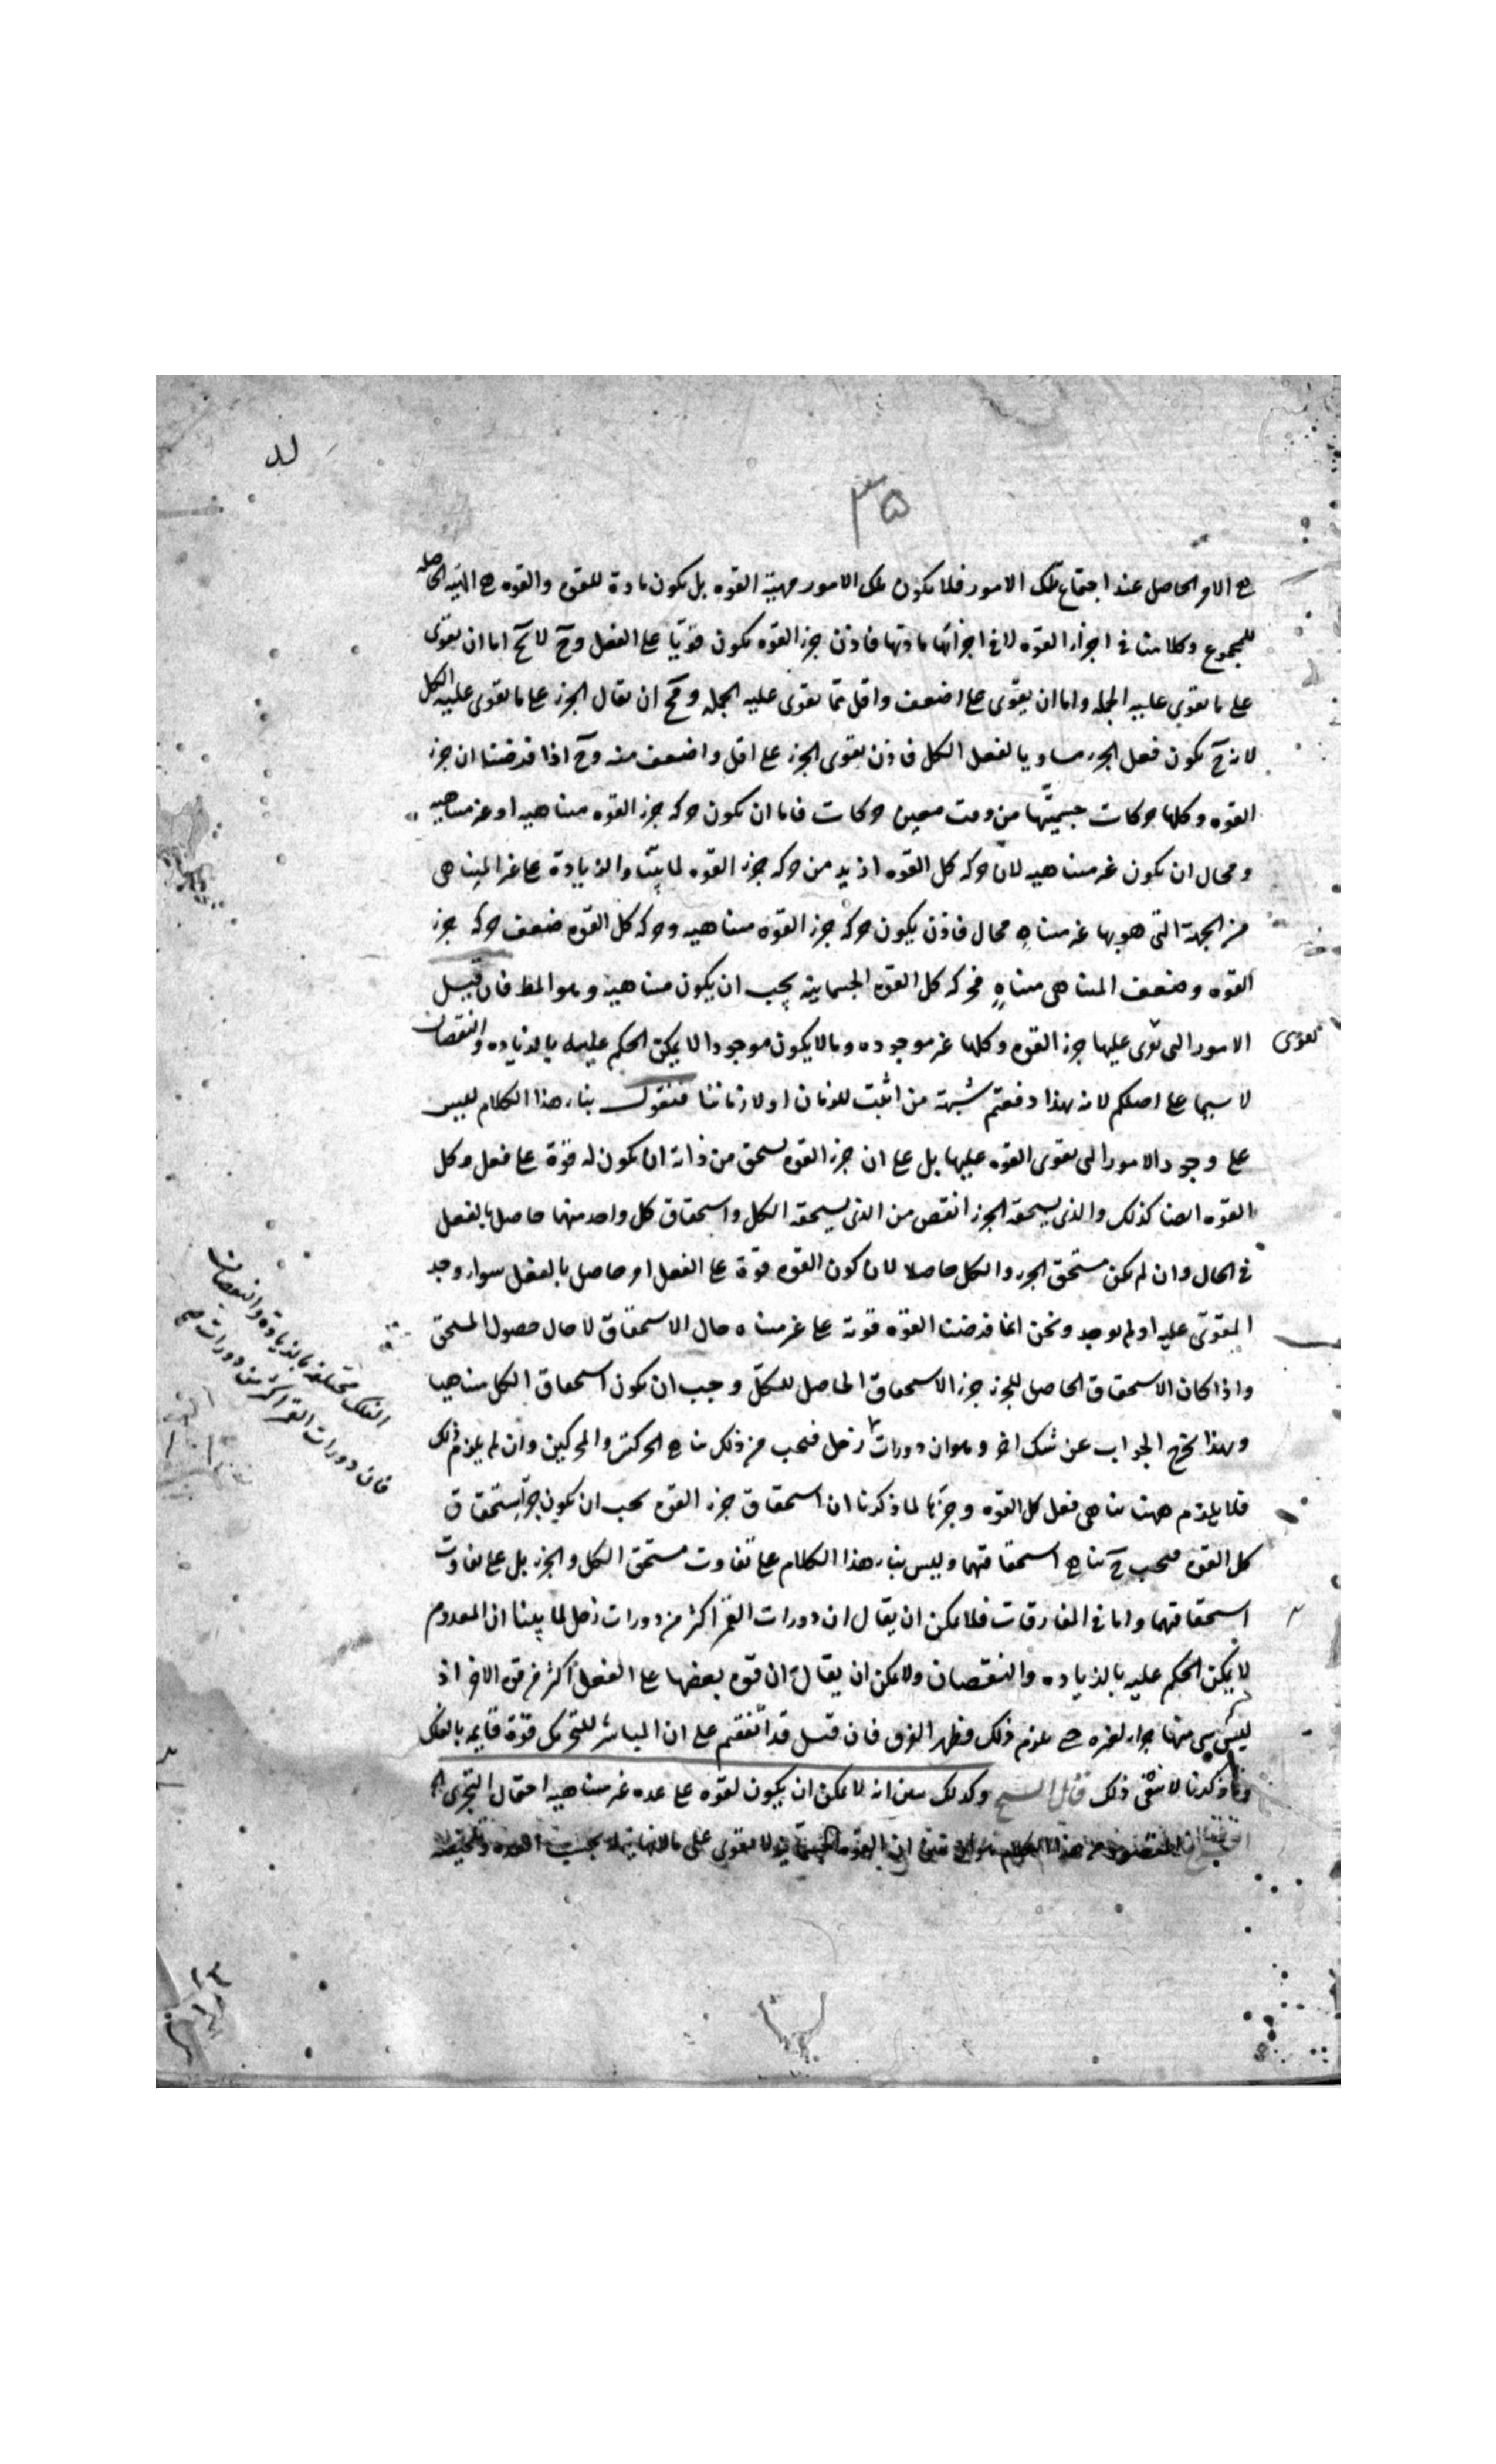 لد
٣٥
هي الامر الحاصل عند اجتماع تلك الامور فلا يكون تلك الامور مهية القوه بل يكون مادة للقوه والقوه هي الهيه الحاصله
للمجموع وكلامنا فى اجزاء القوه لا فى اجزاء مادتها فاذن جزء القوه يكون قويا على الفعل وح لا يخ اما ان يقوى
على ما يقوى عليه الجمله واما ان يقوى على اضعف واقل مما يقوى عليه الجمله ومح ان يقال الجزء على ما يقوى عليه الكل
لانه ح يكون فعل الجزء مساويا لفعل الكل فاذن يقوى الجزء على اقل واضعف منه وح اذا فرضنا ان جزء
القوه وكلها حركات جسميتها من وقت معين حركات فاما ان يكون حركه جزء القوه متناهيه او غير متناهيه
ومحال ان يكون غير متناهيه لان حركه كل القوه ازيد من حركه جزء القوه لما بينا والزيادة على غير المتناهى
من الجهة التى هو بها غير متناه محال فاذن يكون حركة جزء القوه متناهيه وحركه كل القوه ضعف حركه جزء
القوه وضعف المتناهى متناهٍ فحركه كل القوه الجسمانيه يجب ان يكون متناهيه وهو المط فان قيل
الامور التى يقوى عليها جزء القوه وكلها غير موجوده وما لا يكون موجودا لا يمكن الحكم عليه بالزياده والنقصان
يقوى
لا سيما على اصلكم لانه بهذا دفعتم شبهة من اثبت للزمان اولا زمانا فنقول بناء هذا الكلام ليس
على وجود الامور التى يقوى القوه عليها بل على ان جزء القوه يستحق من ذاته ان يكون له قوة على فعل وكل
القوه ايضا كذلك والذى يستحقه الجزء انقص من الذى يستحقه الكل واستحقاق كل واحد منهما حاصل بالفعل
فى الحال وان لم يكن مستحق الجزء والكل حاصلا لان كون القوه قوة على الفعل امر حاصل بالفعل سواء وجد
المقوى عليه او لم يوجد ونحن انما فرضنا القوه قوية على غير متناه حال الاستحقاق لا حال حصول المستحق
واذا كان الاستحقاق الحاصل للجزء جزء الاستحقاق الحاصل للكل وجب ان يكون استحقاق الكل متناهيا
وبهذا يخرج الجواب عن شك اخر وهو ان دورات زحل فيجب من ذلك تناهى الحركتين والمحركين وان لم يلزم ذلك
الفلك مختلفه بالزيادة والنقصان
فان دورات القمر اكثر من دورات صح
فلا يلزم ههنا تناهى فعل كل القوه وجزئها لما ذكرنا ان استحقاق جزء القوه يجب ان يكون جزء استحقاق
كل القوه فيجب ح تناهى استحقاقتهما وليس بناء هذا الكلام على تفاوت مستحق الكل والجزء بل على تفاوت
استحقاقتهما واما فى المفارقات فلا يمكن ان يقال ان دورات القمر اكثر من دورات زحل لما بينا ان المعدوم
لا يمكن الحكم عليه بالزياده والنقصان ولا يمكن ان يقال ان قوه بعضها على الفعل اكثر من قوه الاخر اذ
ليس شى منها جزء لغيره حتى يلزم ذلك فظهر الفرق فان قيل قد اتفقتم على ان المباشر للتحريك قوة قايمه بالفلك
وما ذكرتم لا ينفى ذلك قال الشيخ وكذلك يبين انه لا يمكن ان يكون لقوه على عده غير متناهيه احتمال التجزى
المقصود من هذا الكلام ان القوه الجسمانيه لا يقوى على ما لا نهايه له بحسب العده